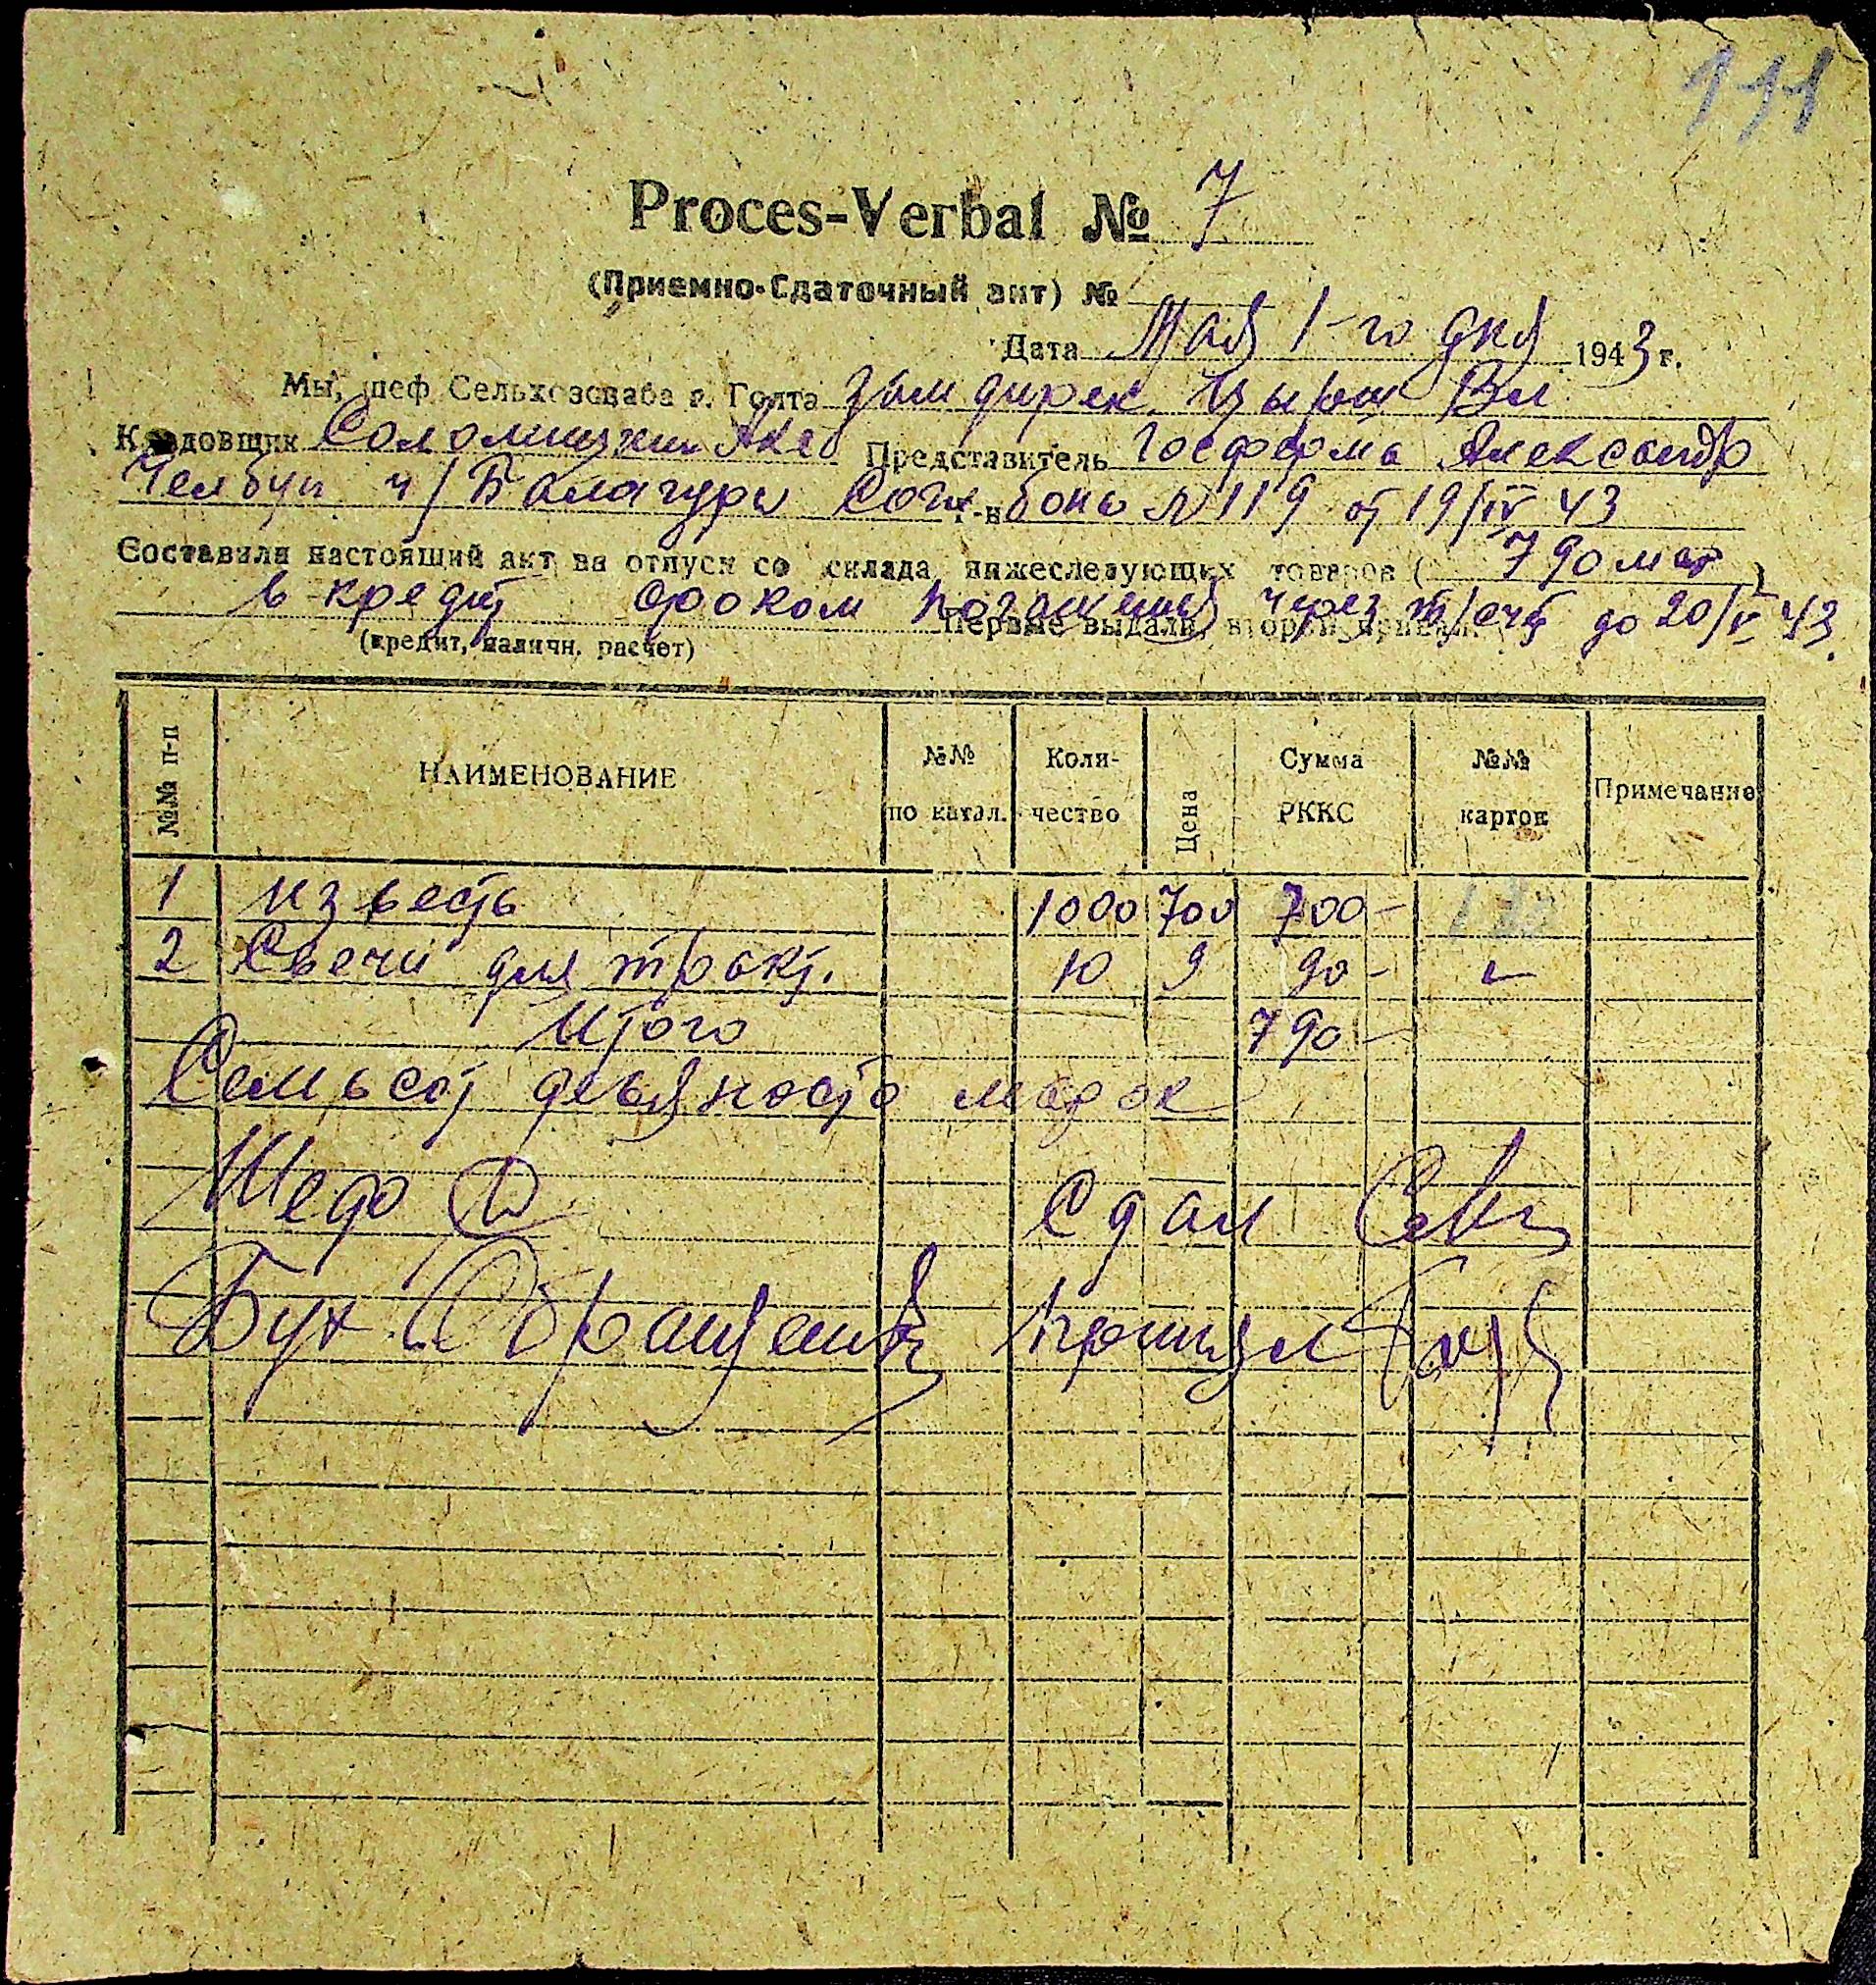 111
Proces-Verbal № 7
(Приемно-Сдаточный акт) №
Дата Мая 1-го дня 1943 г.
Мы, шеф Сельхозснаба г. Голта Зам дирек. Вл
Кладовщик Яков Представитель Госферма Александр
ч/ Балагура Согл. г-н боны № 119 от 19/IV 43
Составили настоящий акт на отпуск со склада, нижеследующих товаров ( 790 мар )
в кредит сроком погашения через до 20/V 43.
(кредит, наличн. расчет) Первые выдали, второй принял
№№ п-п НАИМЕНОВАНИЕ №№ по катал. Коли-чество Цена Сумма РККС №№ карток Примечание
1 известь 1000 700 700 –
2 Свечи для тракт. 10 9 90 –
Итого 790 –
Семьсот девяносто марок
Шеф Сдал
Бух. Принял